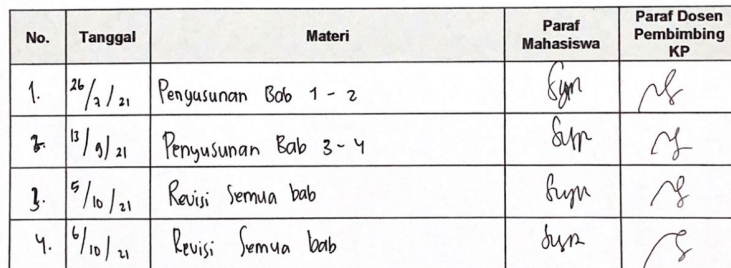 No. Tanggal Materi Paraf Mahasiswa Paraf Dosen Pembimbing KP
1. 26/7/21 Penyusunan Bab 1 - 2
2. 13/9/21 Penyusunan Bab 3 - 4
3. 5/10/21 Revisi Semua bab
4. 6/10/21 Revisi Semua bab